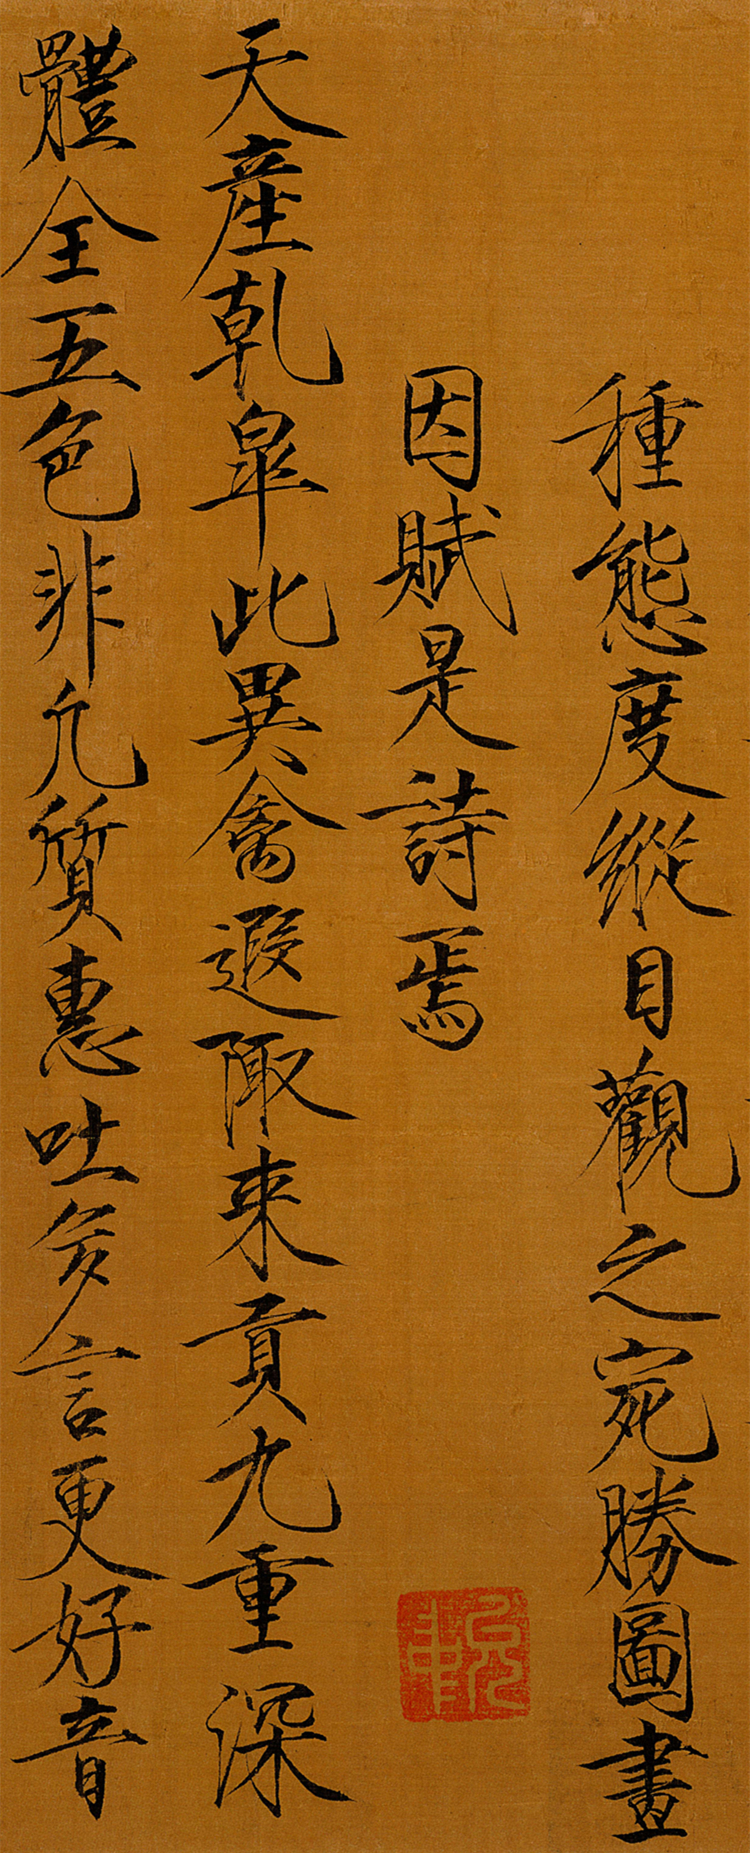 種態度縱目觀之宛勝圖畫
因賦是詩焉
天産乾皐此異禽遐陬来貢九重深
體全五色非凡質惠吐多言更好音